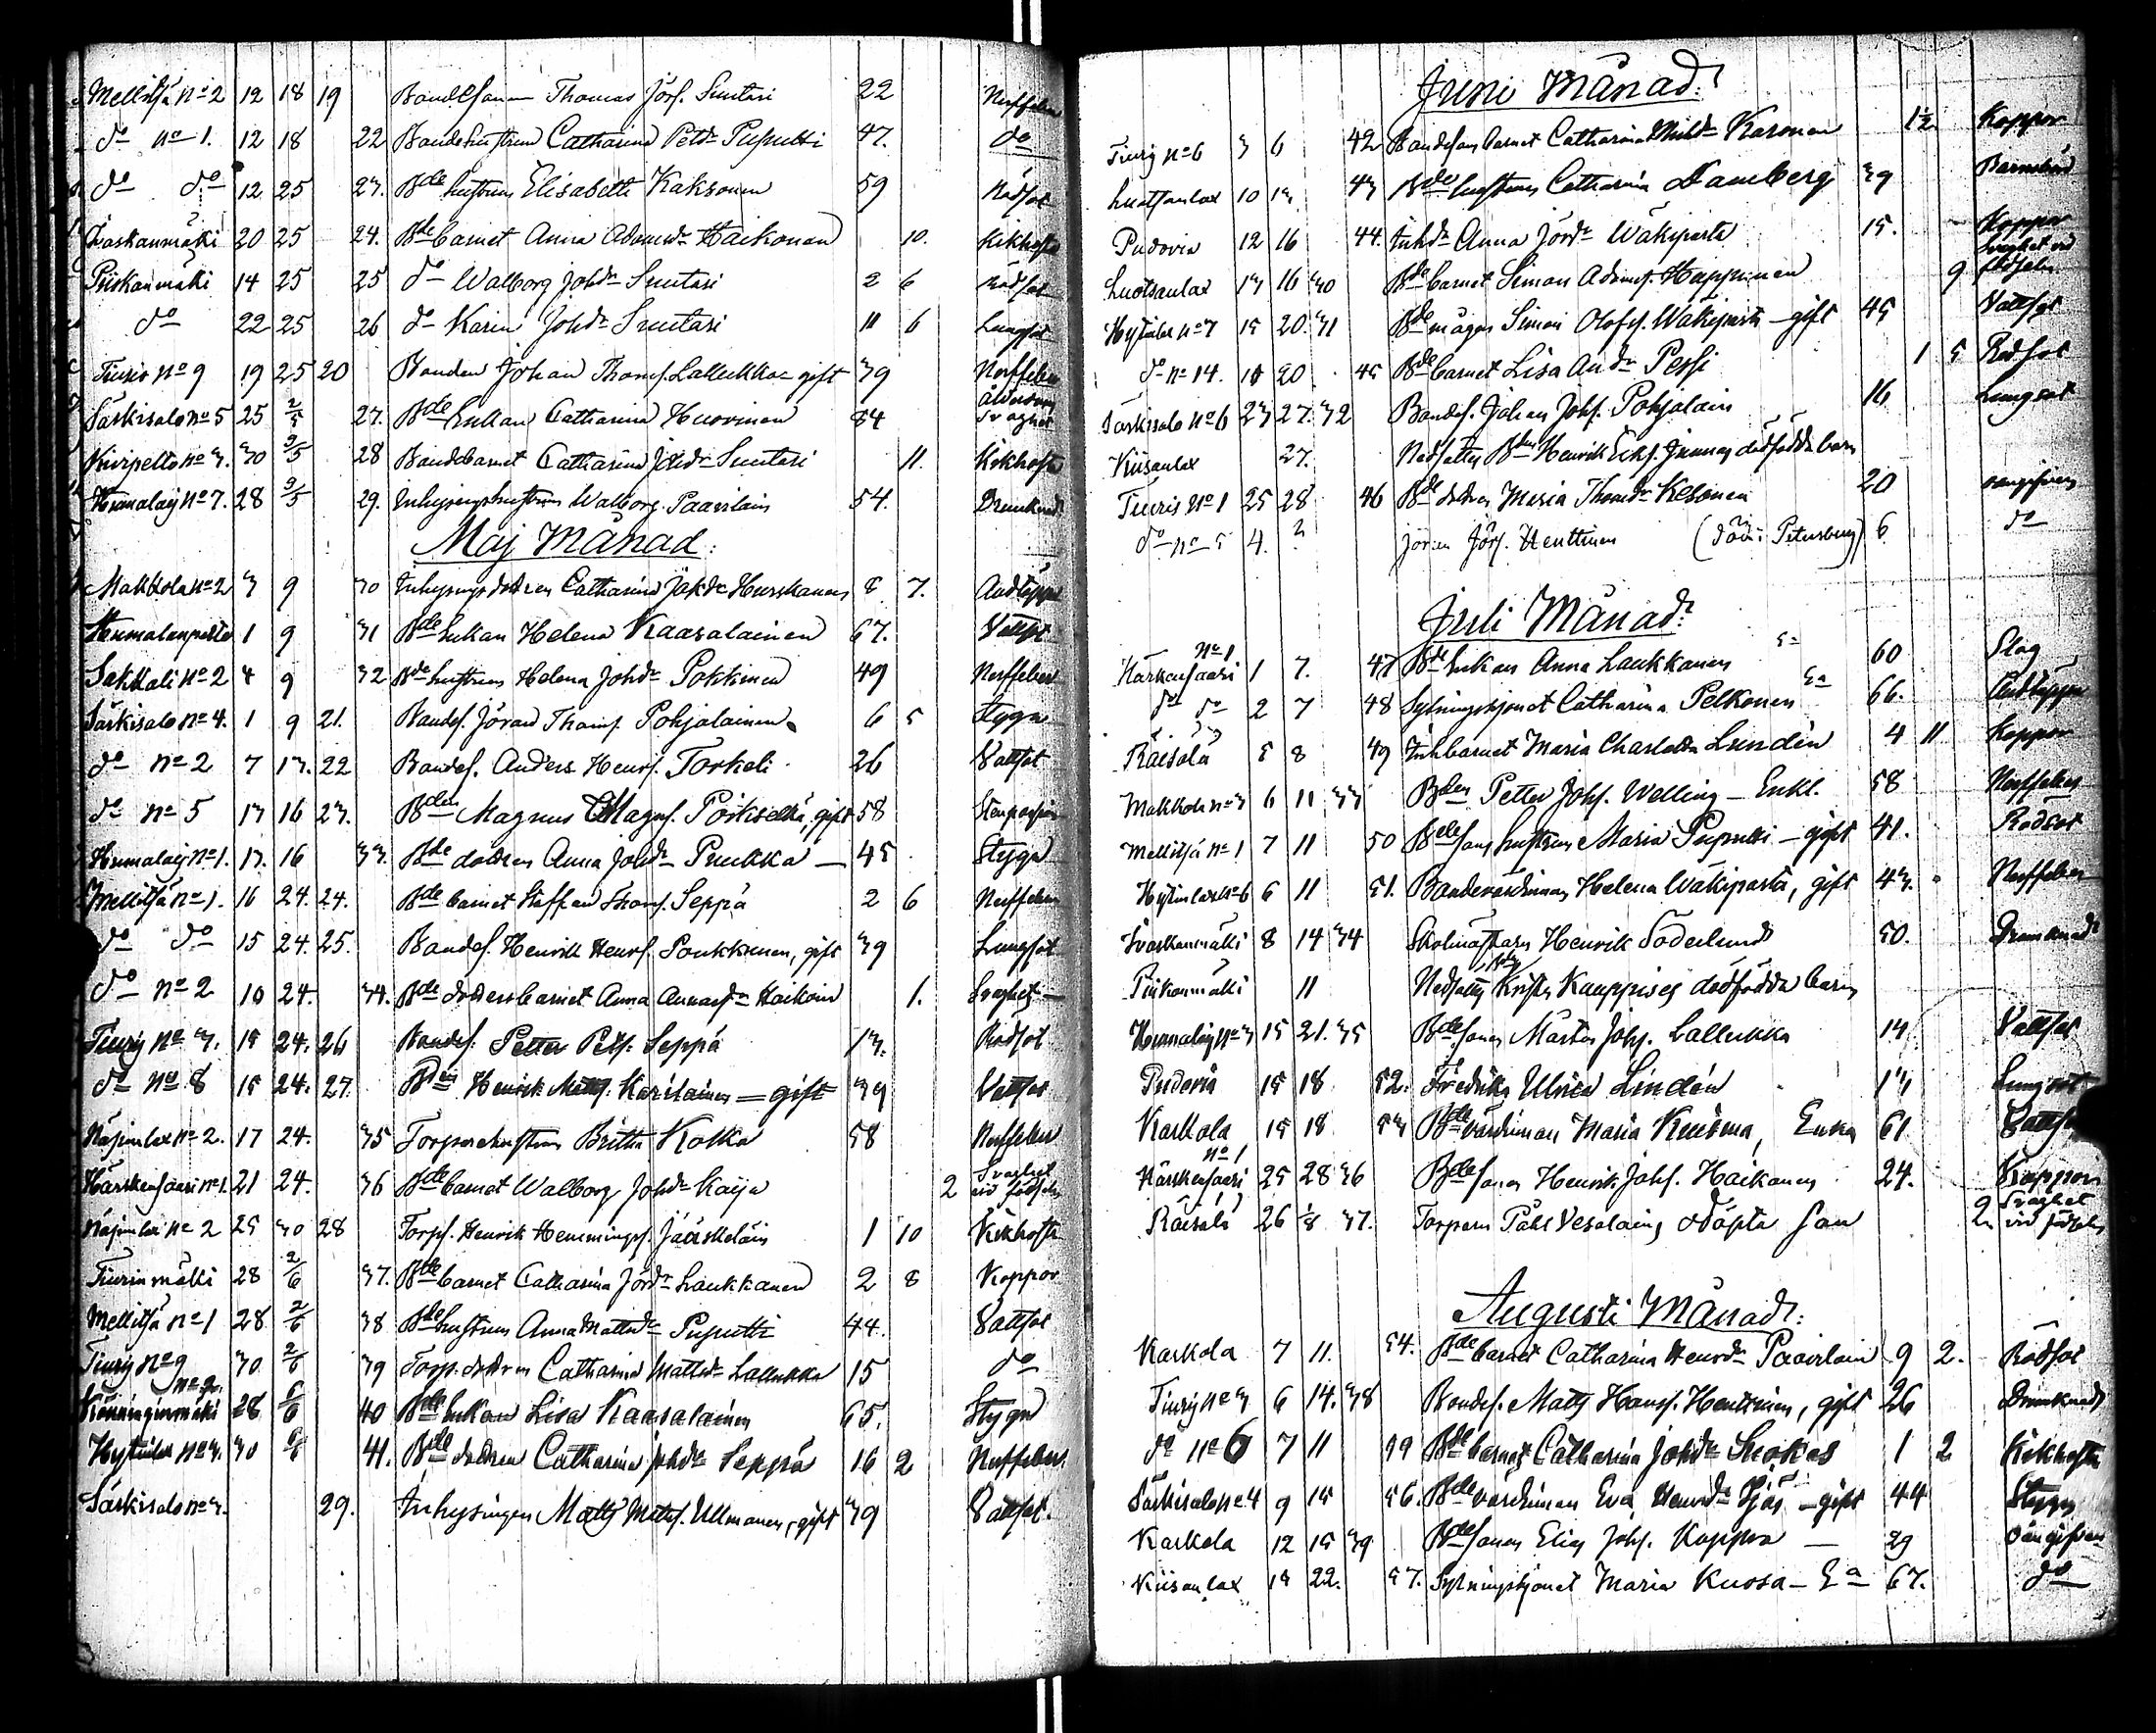 Mellitsä No 2 12 18 19 Bondesonen Thomas Jörs. Suutari 22 Nerffeber
do No 1. 12 18 22 Bondehustrun Catharina Petdr Puputti 47. do
do do 12 25 23. Bde hustrun Elisabeth Kaksonen 59 Rödsot
20 25 24. Bde barnet Anna Adamsdr Haikonen 10. Kikhosta
Piiskanmäki 14 25 25 do Walborg Johdr Suutari 2 6 Rödsot
do 22 25 26 do Karin Johdr Suutari 11 6 Lungsot
Tiuris No 9 19 25 20 Bonden Johan Thoms. Lallukka gift 39 Nerffeber
Särkisalo No 5 25 2/5 27. Bde Enkan Catharina Huovinen 84 Ålderdoms svaghet
Kurpelto No 3. 30 2/5 28 Bondebarnet Catharina Johdr Suutari 11. Kikhosta
Humaloij No 7. 28 2/5 29. Inhysingshustrun Walborg Paavilain 54. Drunknad
Maj Månad:
Makkola No 2 3 9 30 Inhysingsdottren Catharina Jakdr Hurskanen 8 7. Andtäppa
Humalanperto 1 9 31 Bde Enkan Helena Kaasalainen 67. Vattsot
Sakkali No 2 4 9 32 Bde hustrun Helena Johdr Pokkinen 49 Nerffeber
Särkisalo No 4. 1 9 21. Bondes. Jöran Thoms. Pohjalainen 6 5 Stygn
do No 2 7 13. 22 Bondes. Anders Henrs. Torkeli 26 Vattsot
do No 5 13 16 23. Bden Magnus Magns. Pörksekkä, gift 58
Humaloij No 1. 13. 16 33. Bde dottren Anna Johdr Pukka 45 Stygn
Mellitsä No 1. 16 24. 24. Bde barnet Staffan Thoms. Seppä 2 6 Nerffeber
do do 15 24. 25. Bondes. Henrik Henrs. Poukkunen, gift 39 Lungsot
do No 2 10 24. 34. Bde dotters barnet Anna Annasdr Haikoin 1. Svaghet
Tiurij No 3. 15 24. 26 Bondes. Petter Pets. Seppä 13. Rödsot
do No 8 15 24. 27. Bden Henrik Matts. Karilainen gift 39 Vattsot
Näsinlax No 2. 17 24. 35 Torparehustrun Britha Kolka 58 Nerffeber
Härskensaari No 1. 21 24. 36 Bde barnet Walborg Johdr Kaija 2 Svaghet vid födseln
Näsinlax No 2 25 30 28 Torps. Henrik Hemmings. Jääskeläin 1 10 Kikhosta
Tiurinmäki 28 2/6 37. Bde barnet Catharina Jördr Laukkanen 2 8 Koppor
Mellitsä No 1 28 2/6 38 Bde hustrun Anna Mattsdr Puputti 44. Vattsot
Tiurij No 9 30 2/6 39 Torp. dottren Catharina Mattsdr Lallukka 15 do
Könninginmäki No 2. 28 6/6 40 Bde Enkan Lisa Kaasalainen 65. Stygn
Hytinlax No 3. 30 6/6 41. Bde dottren Catharina Johdr Seppä 16 2 Nerffeber
Särkisalo No 3. 29. Inhysingen Matts Matts. Ullmanen, gift 39 Vattsot.
Juni Månad:
Tiurij No 6 3 6 42 Bondesons barnet Catharina Mihdr Karonen 1½ Koppor
Luotsanlax 10 13. 43 Bde hustrun Catharina Damberg 39 Barnsbörd
Pudoria 12 16 44. Inhdr Anna Jördr Wäkiparta 15. Koppor
Luotsanlax 13 16 30 Bde barnet Simon Adams. Happonen 9 Svaghet vid födseln
Hytinlax No 7 15 20. 31 Bde mågen Simon Olofss. Wäkiparta gift 45 Vattsot
do No 14. 18 20 45 Bde barnet Lisa Andr Pessi 1 5 Rödsot
Särkisalo No 6 23 27. 32 Bondes. Johan Johs. Pohjalain 16 Lungsot
Kiisanlax 27. Nedsattes Bden Henrik Eriks. dödfödda barn
Tiuris No 1 25 28 46 Bde dottren Maria Thomdr Kekonen 20 oangifven
do No 5 4. ? Jöran Jörs. Henttinen (död i Petersburg) 6 do
Juli Månad:
Härskensaari No 1 1 7. 47 Bde Enkan Anna Laukkanen Ea 60 Slag
do do 2 7 48 Sytningshjonet Catharina Pelkonen Ea 66. Andtäppa
Räisälä 5 8 49 Inhbarnet Maria Charlotta Lindén 4 11 Koppor
Makkola No 3 6 11 33 Bden Petter Johs. Welling Enkl. 58 Nerffeber
Mellitsä No 1 7 11 50 Bdesons hustrun Maria Puputti gift 41. Rödsot
Hytinlax No 6 6 11 51. Bondevärdinnan Helena Wäkiparta, gift 43. Nerffeber
8 14 34 Skolmästaren Henrik Söderlund 50. Drunknad
Piiskanmäki 11 Nedsattes Bden Krister Kauppises dödfödda barn
Humaloij No 3 15 21. 35 Bde sonen Mårten Johs. Lallukka 14 Vattsot
Pudoria 15 18 52. Fredrika Ulrica Lindén 13 Lungsot
Karkola 15 18 53 Bde värdinnan Maria Kuisma, Enka 61 Vattsot
Härskensaari No 1 25 28 36 Bde sonen Henrik Johs. Haikonen 24. Koppor
Räisälä 26 1/8 37. Torparen Påhl Vesalains odöpta son 2 Svaghet vid födseln
Augusti Månad:
Karkola 7 11. 54. Bde barnet Catharina Henrdr Paavilain 9 2. Rödsot
Tiurij No 3 6 14. 38 Bondes. Matts Hanss. Henttinen, gift 26 Drunknad
do No 6 7 11 55 Bde barnet Catharina Johdr Suokas 1 2 Kikhosta
Särkisalo No 4 9 15 56. Bde värdinnan Eva Henrdr gift 44 Stygn
Karkola 12 15 39 Bde sonen Elias Johs. Koppra 29 Oangifven
Kiisanlax 18 22. 57. Sytningshjonet Maria Kuosa Ea 67. do